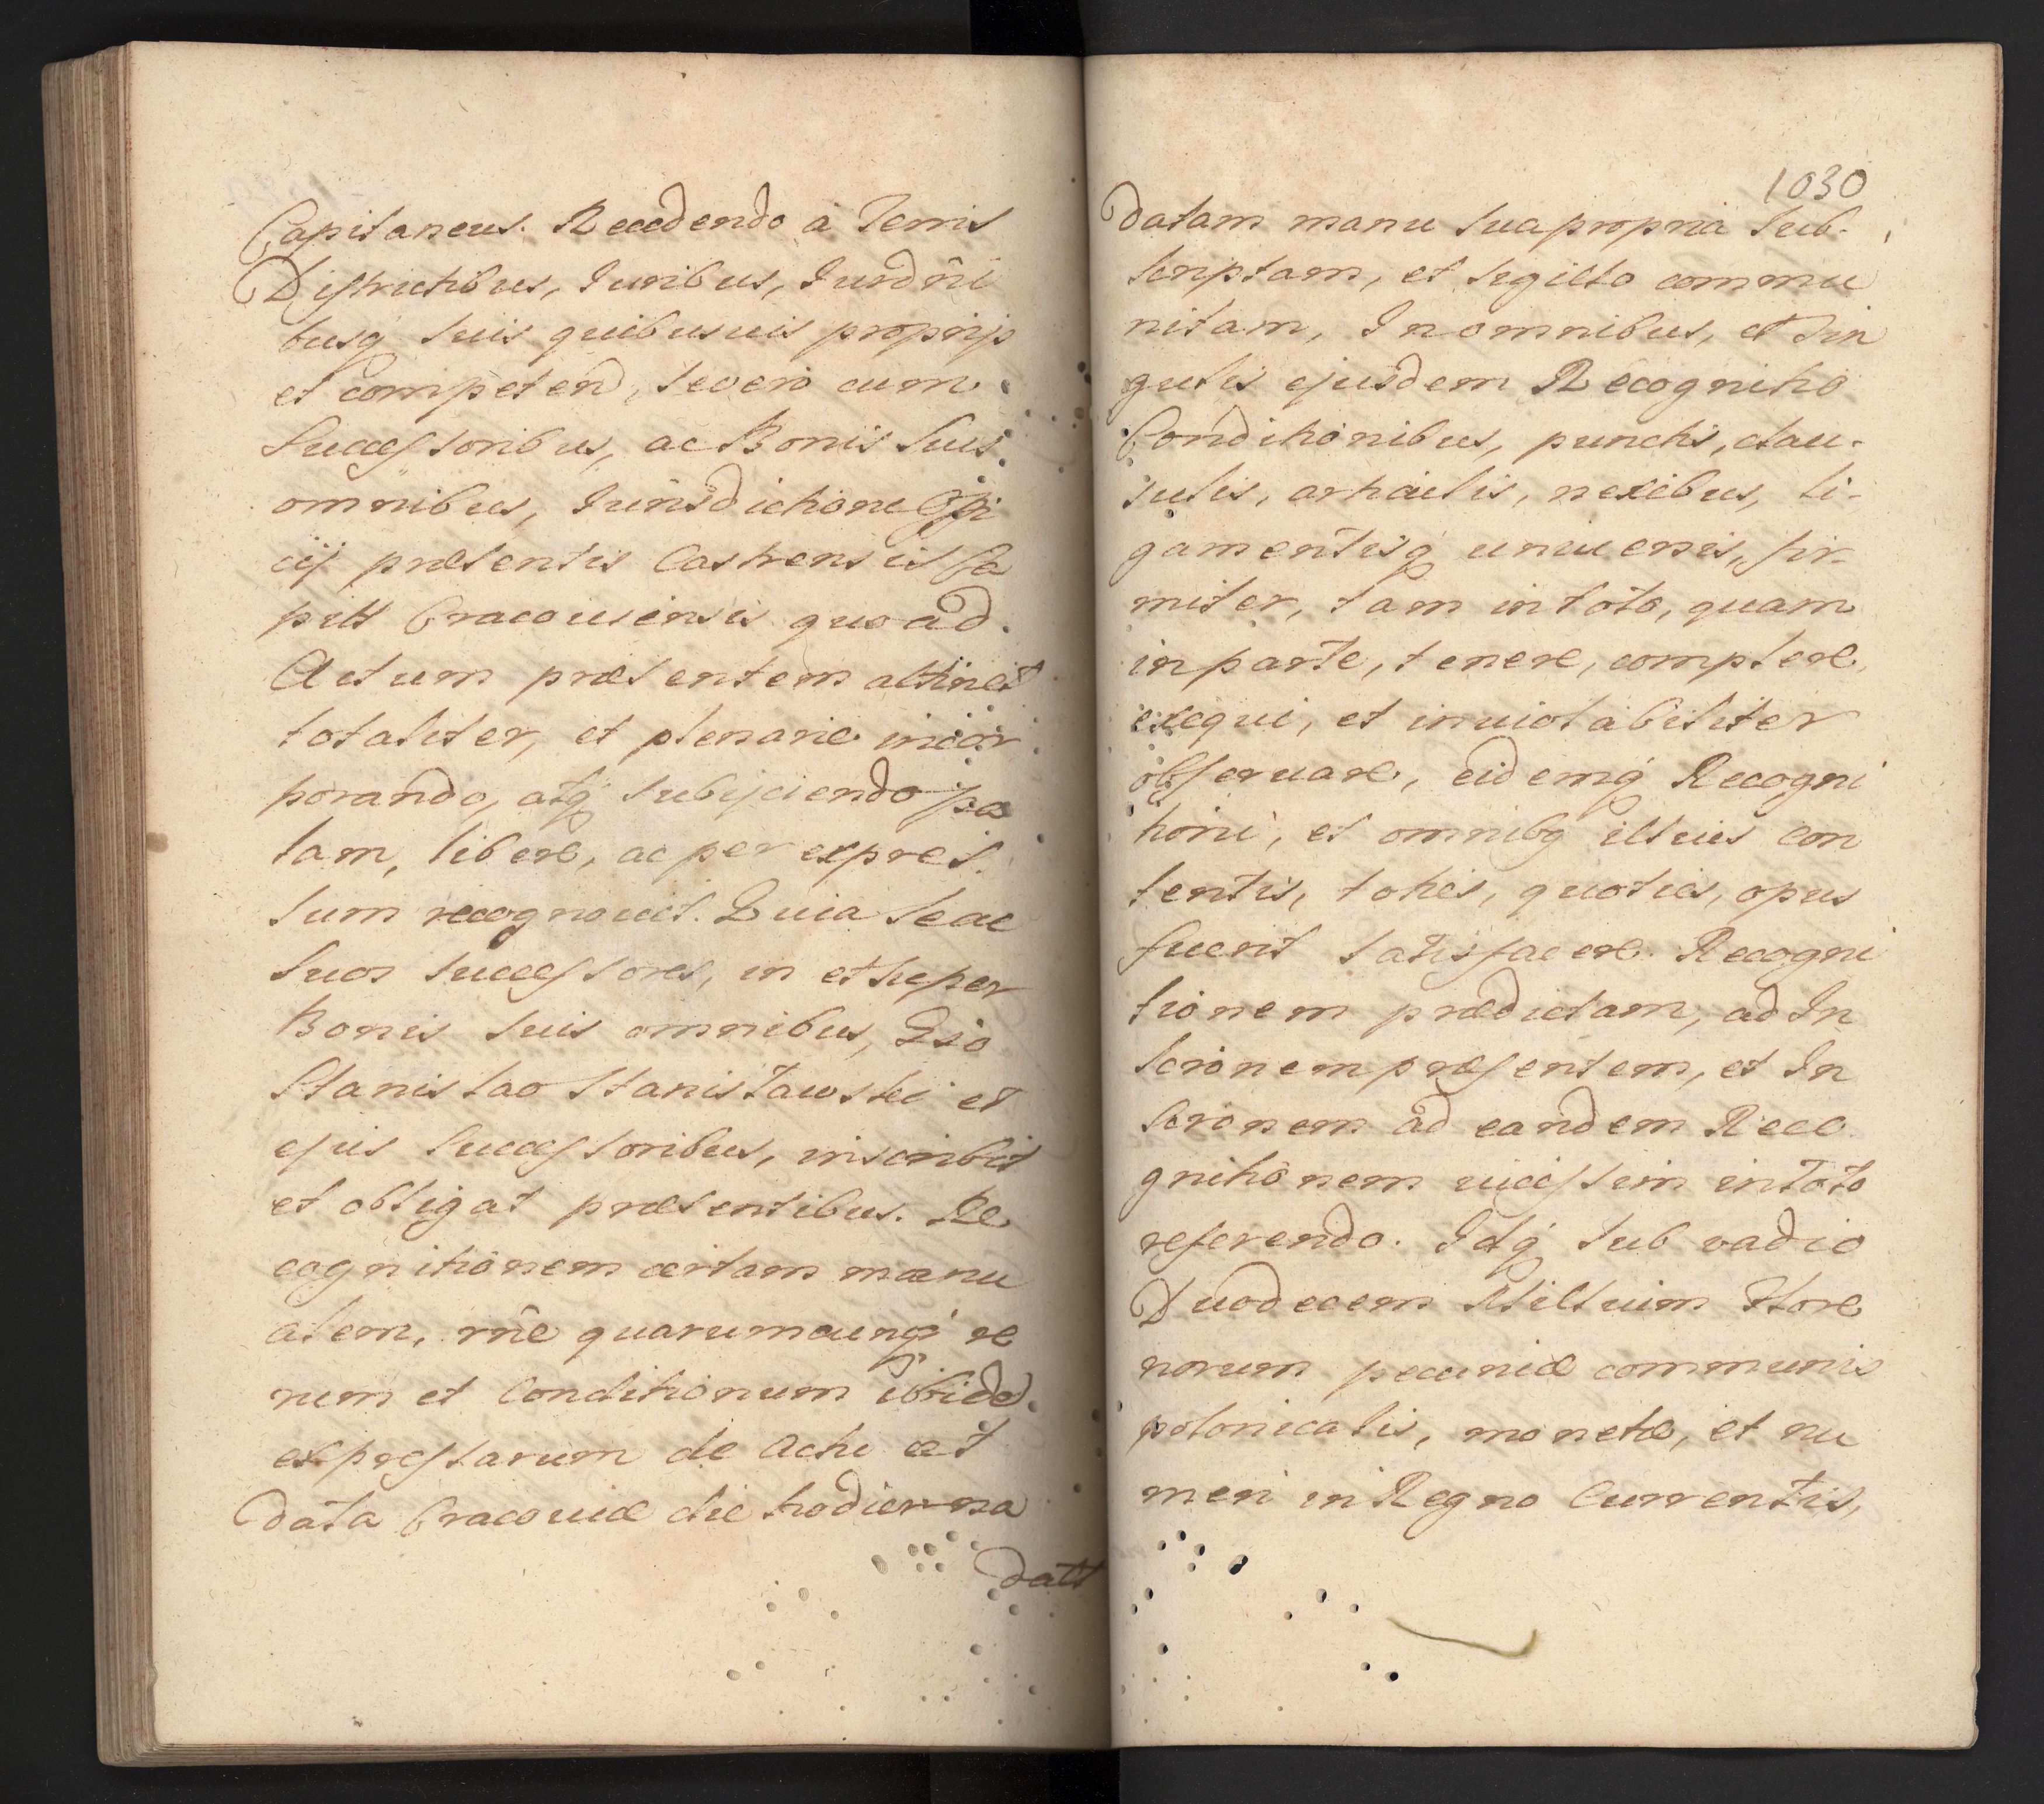 Capitaneus. Recedendo a Terris
Districtibus, Iuribus, Iurdn̄i
busq suis quibusuis proprijs
et competen̄, se vero cum
Successoribus, ac Bonis suis
omnibus, Iurisdictione Offi
cij præsentis Castrensis Ca
pitt Cracouiensis quo ad
Actum præsentem attinet
totaliter, et plenarie incor
porando, atq subijciendo pa
lam, libere, ac per expres
sum recognouit. Quia se ac
suos successores, in et super
Bonis suis omnibus, Gso
Stanislao Stanisławski et
ejus Successoribus, inscribit
et obligat præsentibus. Re
cognitionem certam manu
alem, rn̄e quarumcunq re
rum et Conditionum ibide
expressarum de Actu et
data Cracouiæ die hodierna
datt
1030
datam manu sua propria sub-
scriptam, et sigillo commu
nitam, In omnibus, et sin
gulis ejusdem Recognitio
Conditionibus, punctis, clau-
sulis, articulis, nexibus, li-
gamentisq uniuersis, fir-
miter, tam in toto, quam
in parte, tenere, complere,
exequi, et inuiolabiliter
obseruare, eidemq Recogni
tioni, et omnibq illius con
tentis, toties, quoties, opus
fuerit satisfacere. Recogni
tionem prædictam, ad In
scrionem præsentem, et In
scrionem ad eandem Reco
gnitionem uicissim in toto
referendo. Idq sub vadio
Duodecem Milluim flore
norum pecuniæ communis
polonicalis, monetæ, et nu
meri in Regno Currentis,